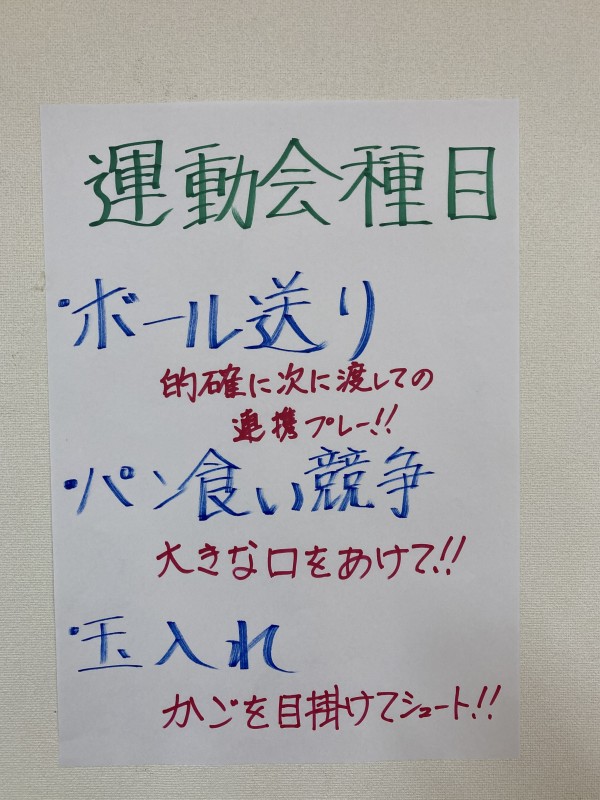 運動会種目
・ボール送り
的確に次に渡しての
連携プレー!!
・パン食い競争
大きな口をあけて!!
・玉入れ
かごを目掛けてシュート!!